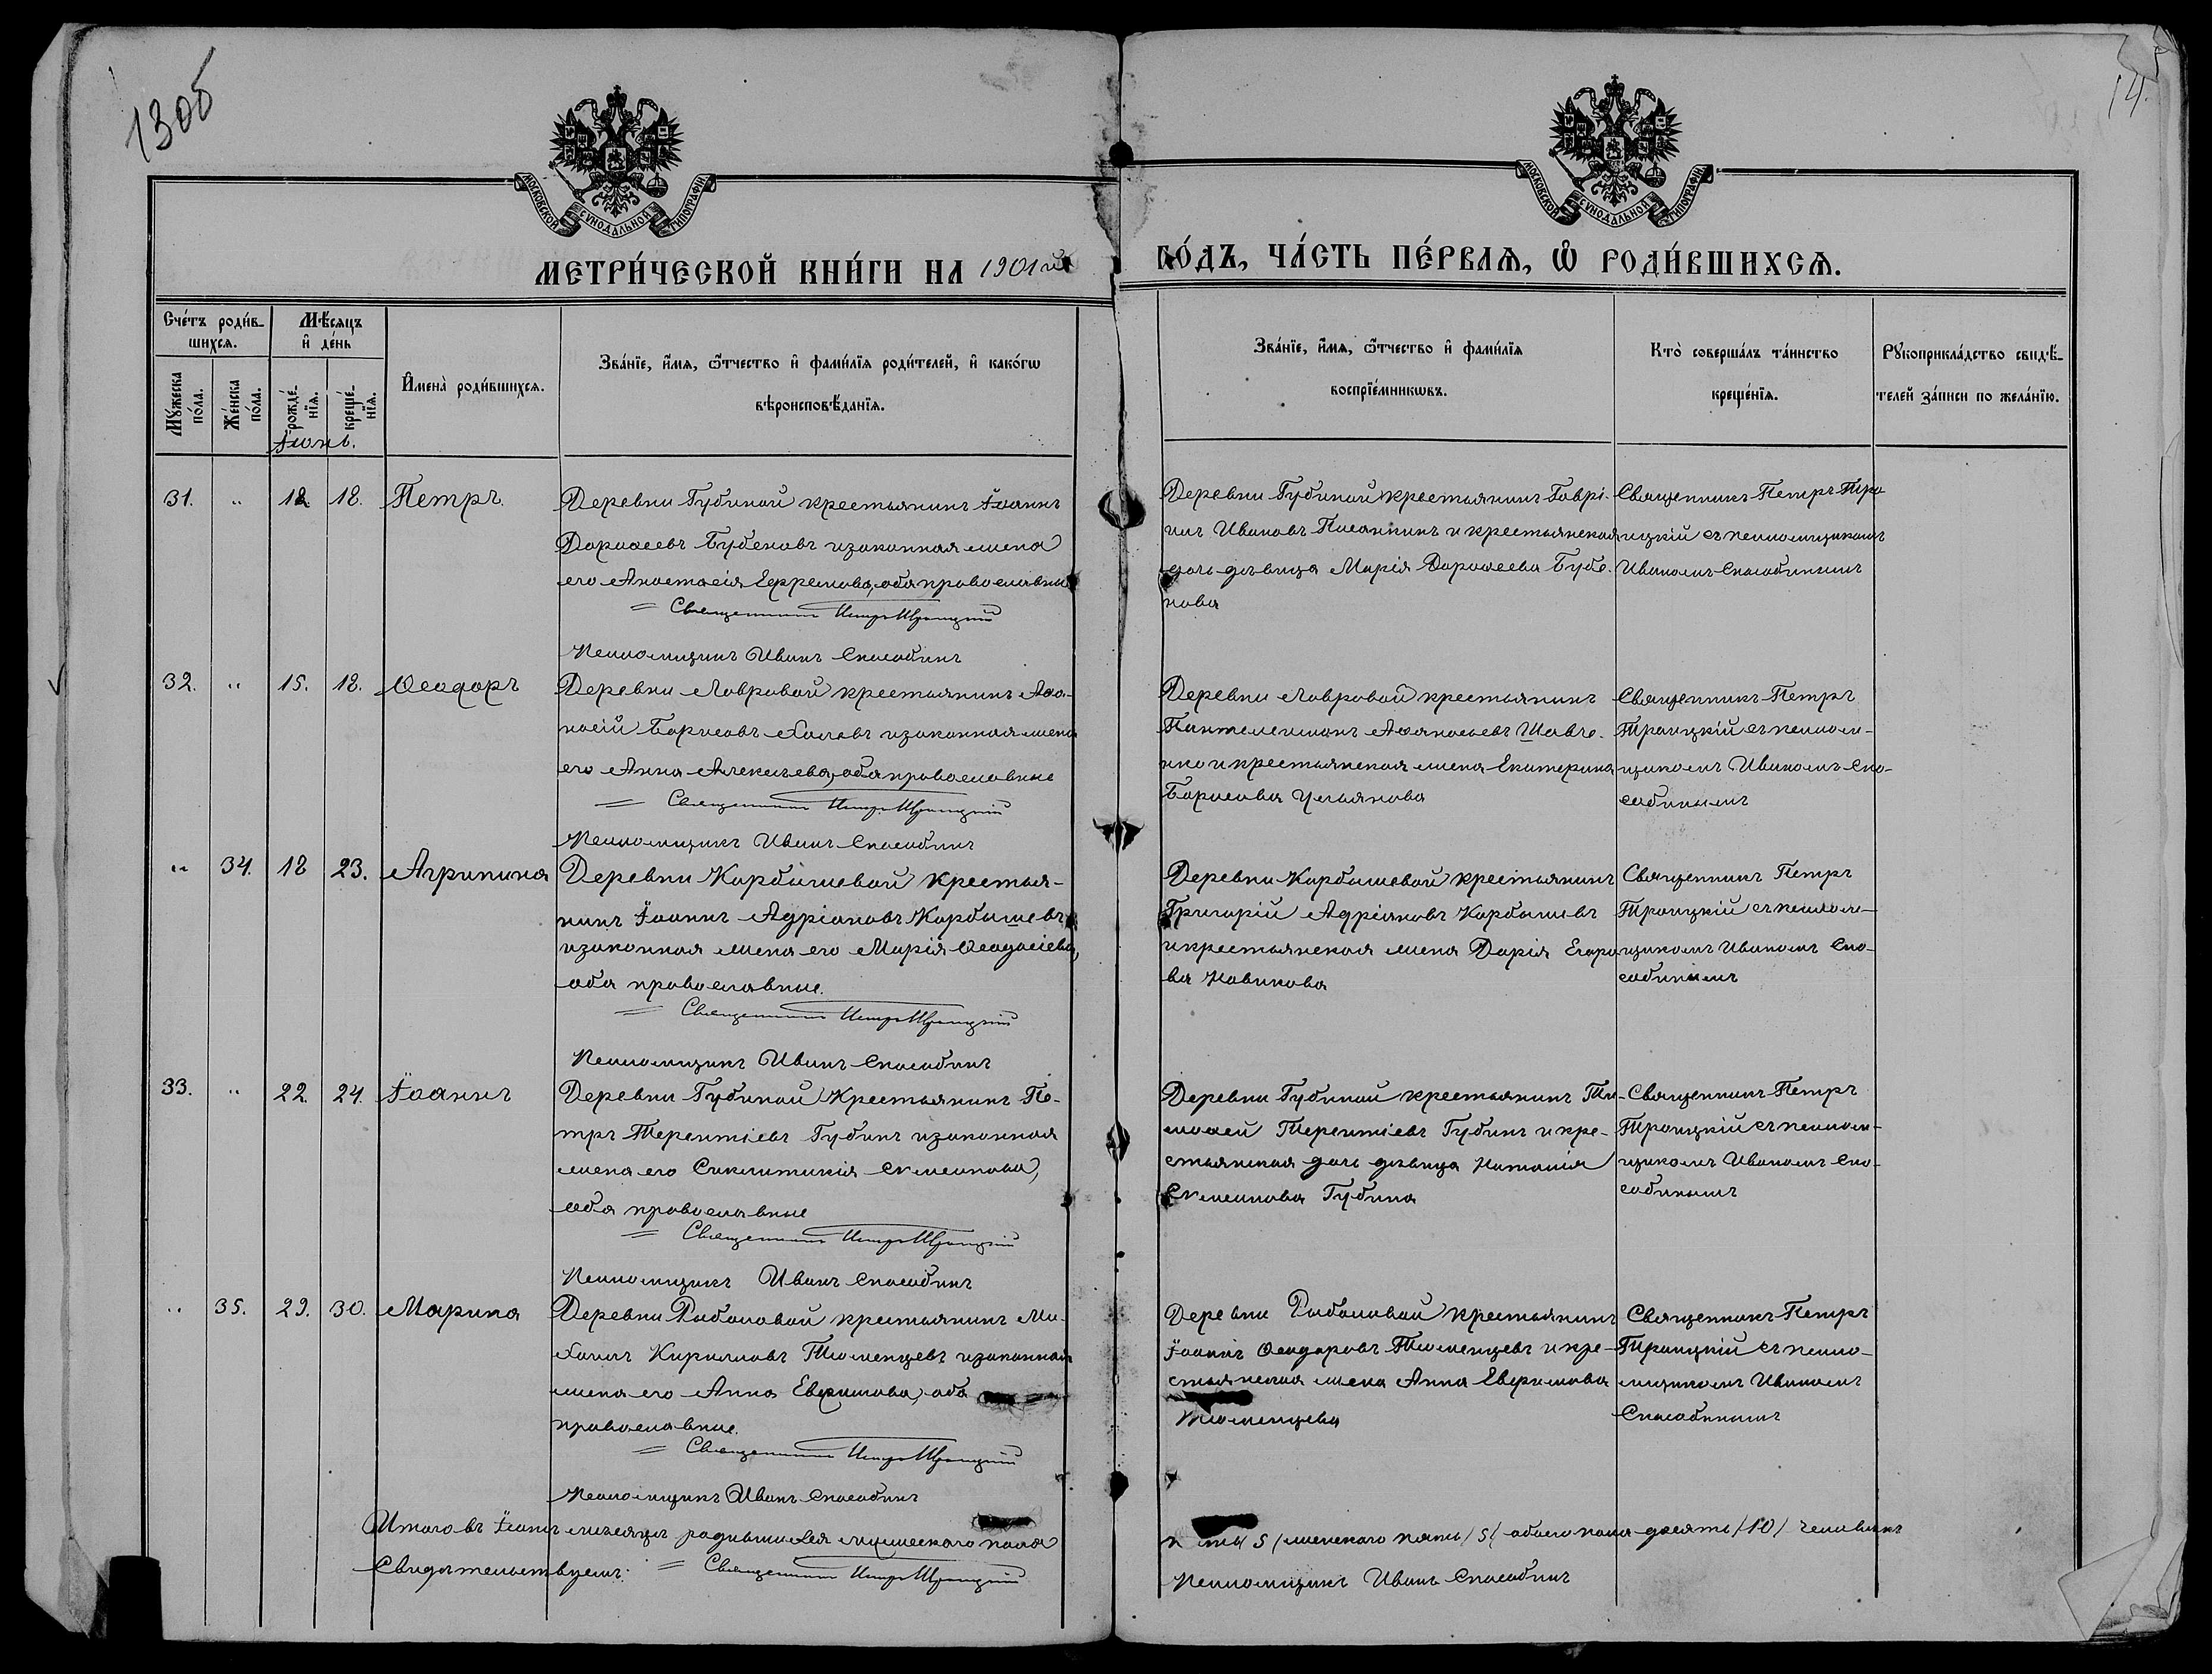 13об
14.
МОСКОВСКОЙ СѴНОДАЛЬНОЙ ТИПОГРАФІИ
МОСКОВСКОЙ СѴНОДАЛЬНОЙ ТИПОГРАФІИ
МЕТРИ́ЧЕСКОЙ КНИ́ГИ НА 1901й
ГО́ДЪ, ЧА́СТЬ ПЕ́РВАѦ, Ѡ РОДИ́ВШИХСѦ.
Сче́тъ роди́в-
шихсѧ.
Мꙋ́жеска
по́ла.
Же́нска
по́ла.
Мѣ́сѧцъ
и҆ де́нь
рожде́-
нїѧ.
креще́-
нїѧ.
Іюнь.
И҆мена̀ роди́вшихсѧ.
Зва́нїе, и҆́мѧ, ѻ҆́тчество и҆ фами́лїѧ роди́телей, и҆ како́гѡ
вѣроисповѣ́данїѧ.
Зва́нїе, и҆́мѧ, ѻ҆́тчество и҆ фами́лїѧ
воспрїе́мникѡвъ.
Кто̀ соверша́лъ та́инство
креще́нїѧ.
Рꙋкоприкла́дство свидѣ́-
телей за́писи по жела́нїю.
31. " 12. 18. Петръ.
Деревни Губиной крестьянинъ Іоаннъ
Дороѳеевъ Бубеновъ и законная жена
его Анастасія Ефремова, оба православные
= Священникъ Петръ Троицкій
Псаломщикъ Иванъ Способинъ
Деревни Губиной крестьянинъ Гаврі-
илъ Ивановъ Писанкинъ и крестьянская
дочь дѣвица Марія Дороѳеева Бубе-
нова
Священникъ Петръ Тро
ицкій съ псаломщикомъ
Иваномъ Способинымъ
32. " 15. 18. Ѳеодоръ
Деревни Лавровой крестьянинъ Аѳа-
насій Борисовъ Халевъ и законная жена
его Анна Алексѣева, оба православные
= Священникъ Петръ Троицкій
Псаломщикъ Иванъ Способинъ
Деревни Лавровой крестьянинъ
Пантелеимонъ Аѳанасьевъ Шевче-
нко и крестьянская жена Екатерина
Борисова Ульянова
Священникъ Петръ
Троицкій съ псалом-
щикомъ Иваномъ Спо-
собинымъ
" 34. 18 23. Агрипина
Деревни Карбышевой крестья-
нинъ Іоаннъ Адріановъ Карбышевъ
и законная жена его Марія Ѳеодосіева,
оба православные.
= Священникъ Петръ Троицкій
Псаломщикъ Иванъ Способинъ
Деревни Карбышевой крестьянинъ
Григорій Адріановъ Карбышевъ
и крестьянская жена Дарія Егоро
ва Новикова
Священникъ Петръ
Троицкій съ псалом-
щикомъ Иваномъ Спо-
собинымъ
33. " 22. 24. Іоаннъ
Деревни Губиной крестьянинъ Пе-
тръ Терентіевъ Губинъ и законная
жена его Синклитикія Симеонова,
оба православные
= Священникъ Петръ Троицкій
Псаломщикъ Иванъ Способинъ
Деревни Губиной крестьянинъ Ти-
моѳей Терентіевъ Губинъ и кре-
стьянская дочь дѣвица Наталія
Симеонова Губина
Священникъ Петръ
Троицкій съ псалом-
щикомъ Иваномъ Спо-
собинымъ
" 35. 29. 30. Марина
Деревни Рыболовой крестьянинъ Ми-
хаилъ Кирилловъ Тюменцевъ и законная
жена его Анна Евфимова, оба
православные.
= Священникъ Петръ Троицкій
Псаломщикъ Иванъ Способинъ
Деревни Рыболовой крестьянинъ
Іоаннъ Ѳеодоровъ Тюменцевъ и кре-
стьянская жена Анна Евфимова
Тюменцева
Священникъ Петръ
Троицкій съ псало-
мщикомъ Иваномъ
Способинымъ
Итого въ Іюнѣ мѣсяцѣ родившихся мужескаго пола
5 / женскаго пять / 5 / обоего пола десять / 10 / человѣкъ
Свидѣтельствуемъ: = Священникъ Петръ Троицкій
Псаломщикъ Иванъ Способинъ